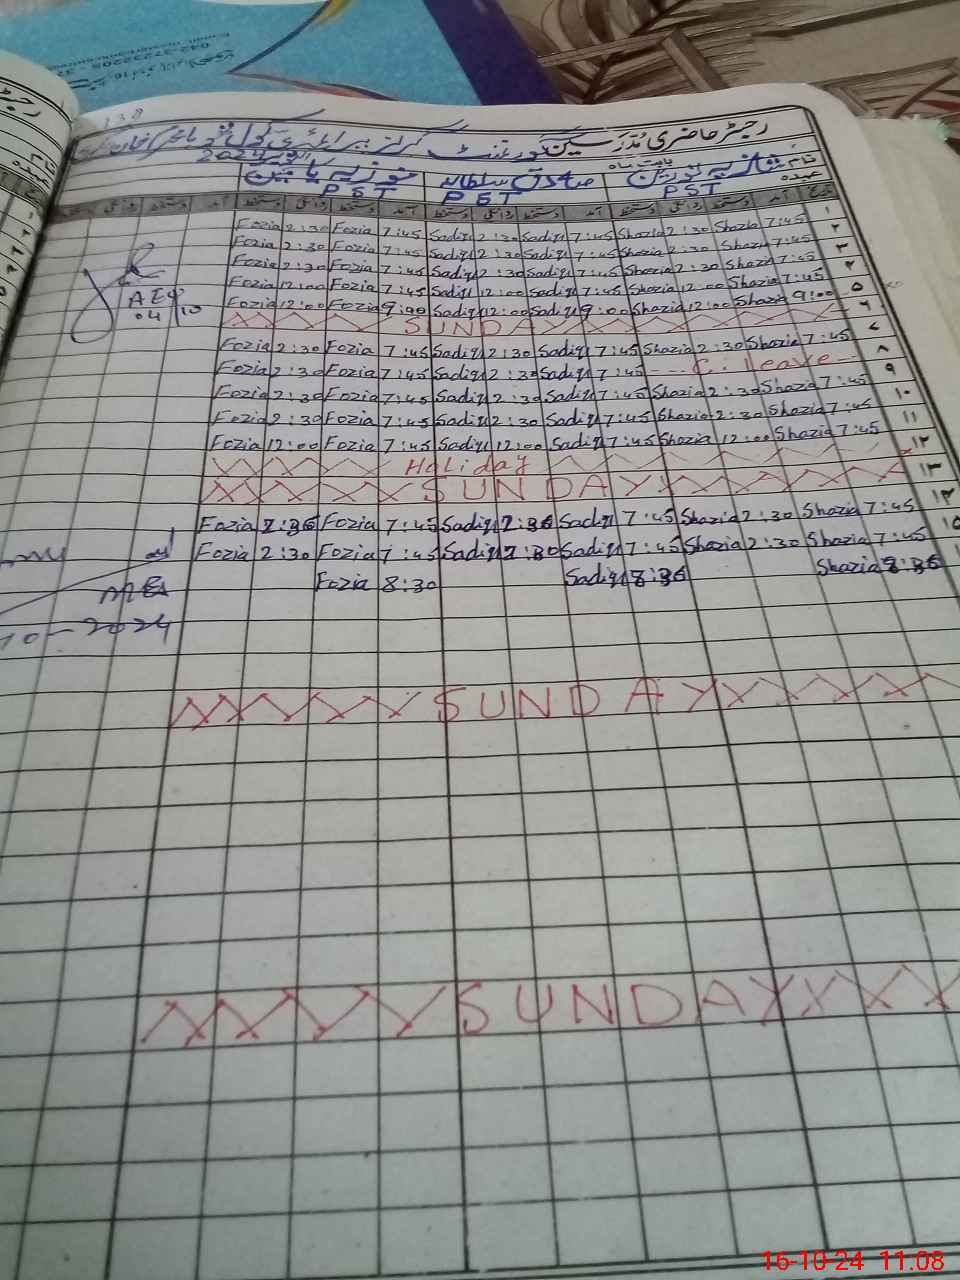 138
رجسٹر حاضری مدرسین گورنمنٹ گرلز پرائمری سکول
نام شازیہ نورین صادق سلطانہ فوزیہ یاسمین
بابت ماہ اکتوبر 2024
عہدہ PST PST PST
تاریخ آمد دستخط روانگی دستخط آمد دستخط روانگی دستخط آمد دستخط روانگی دستخط آمد
Fozia 2:30 Fozia 7:45 Sadiq 2:30 Sadiq 7:45 Shazia 2:30 Shazia 7:45 ۱
Fozia 2:30 Fozia 7:45 Sadiq 2:30 Sadiq 7:45 Shazia 2:30 Shazia 7:45 ۲
Fozia 2:30 Fozia 7:45 Sadiq 2:30 Sadiq 7:45 Shazia 2:30 Shazia 7:45 ۳
Fozia 12:00 Fozia 7:45 Sadiq 12:00 Sadiq 7:45 Shazia 12:00 Shazia 7:45 ۴
AEO
04/10
Fozia 12:00 Fozia 9:00 Sadiq 12:00 Sadiq 9:00 Shazia 12:00 Shazia 9:00 ۵
SUNDAY ۶
Fozia 2:30 Fozia 7:45 Sadiq 2:30 Sadiq 7:45 Shazia 2:30 Shazia 7:45 ۷
Fozia 2:30 Fozia 7:45 Sadiq 2:30 Sadiq 7:45 --- C. leave - ۸
Fozia 2:30 Fozia 7:45 Sadiq 2:30 Sadiq 7:45 Shazia 2:30 Shazia 7:45 ۹
Fozia 2:30 Fozia 7:45 Sadiq 2:30 Sadiq 7:45 Shazia 2:30 Shazia 7:45 ۱۰
Fozia 12:00 Fozia 7:45 Sadiq 12:00 Sadiq 7:45 Shazia 12:00 Shazia 7:45 ۱۱
Holiday ۱۲
SUNDAY ۱۳
Fozia 2:30 Fozia 7:45 Sadiq 2:30 Sadiq 7:45 Shazia 2:30 Shazia 7:45 ۱۴
Fozia 2:30 Fozia 7:45 Sadiq 2:30 Sadiq 7:45 Shazia 2:30 Shazia 7:45 ۱۵
Fozia 8:30 Sadiq 8:30 Shazia 8:30
10-2024
SUNDAY
SUNDAY
16-10-24 11.08